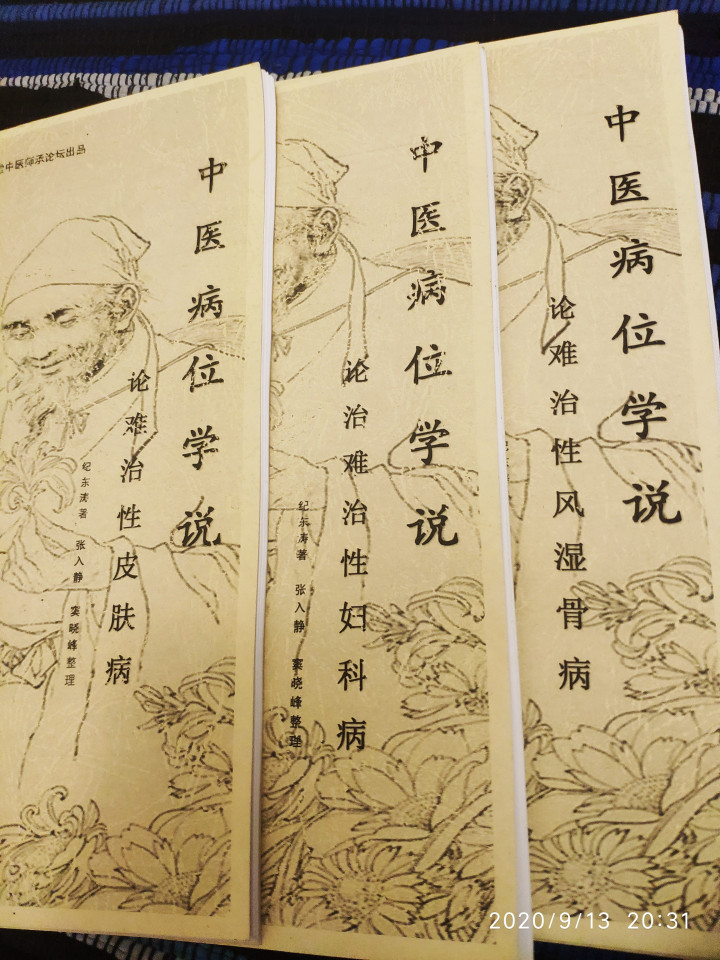 中医师承论坛出品
中医病位学说
论难治性皮肤病
纪东涛著 张入静 窦晓峰整理
中医病位学说
论治难治性妇科病
纪东涛著 张入静 窦晓峰整理
中医病位学说
论难治性风湿骨病
2020/9/13 20:31